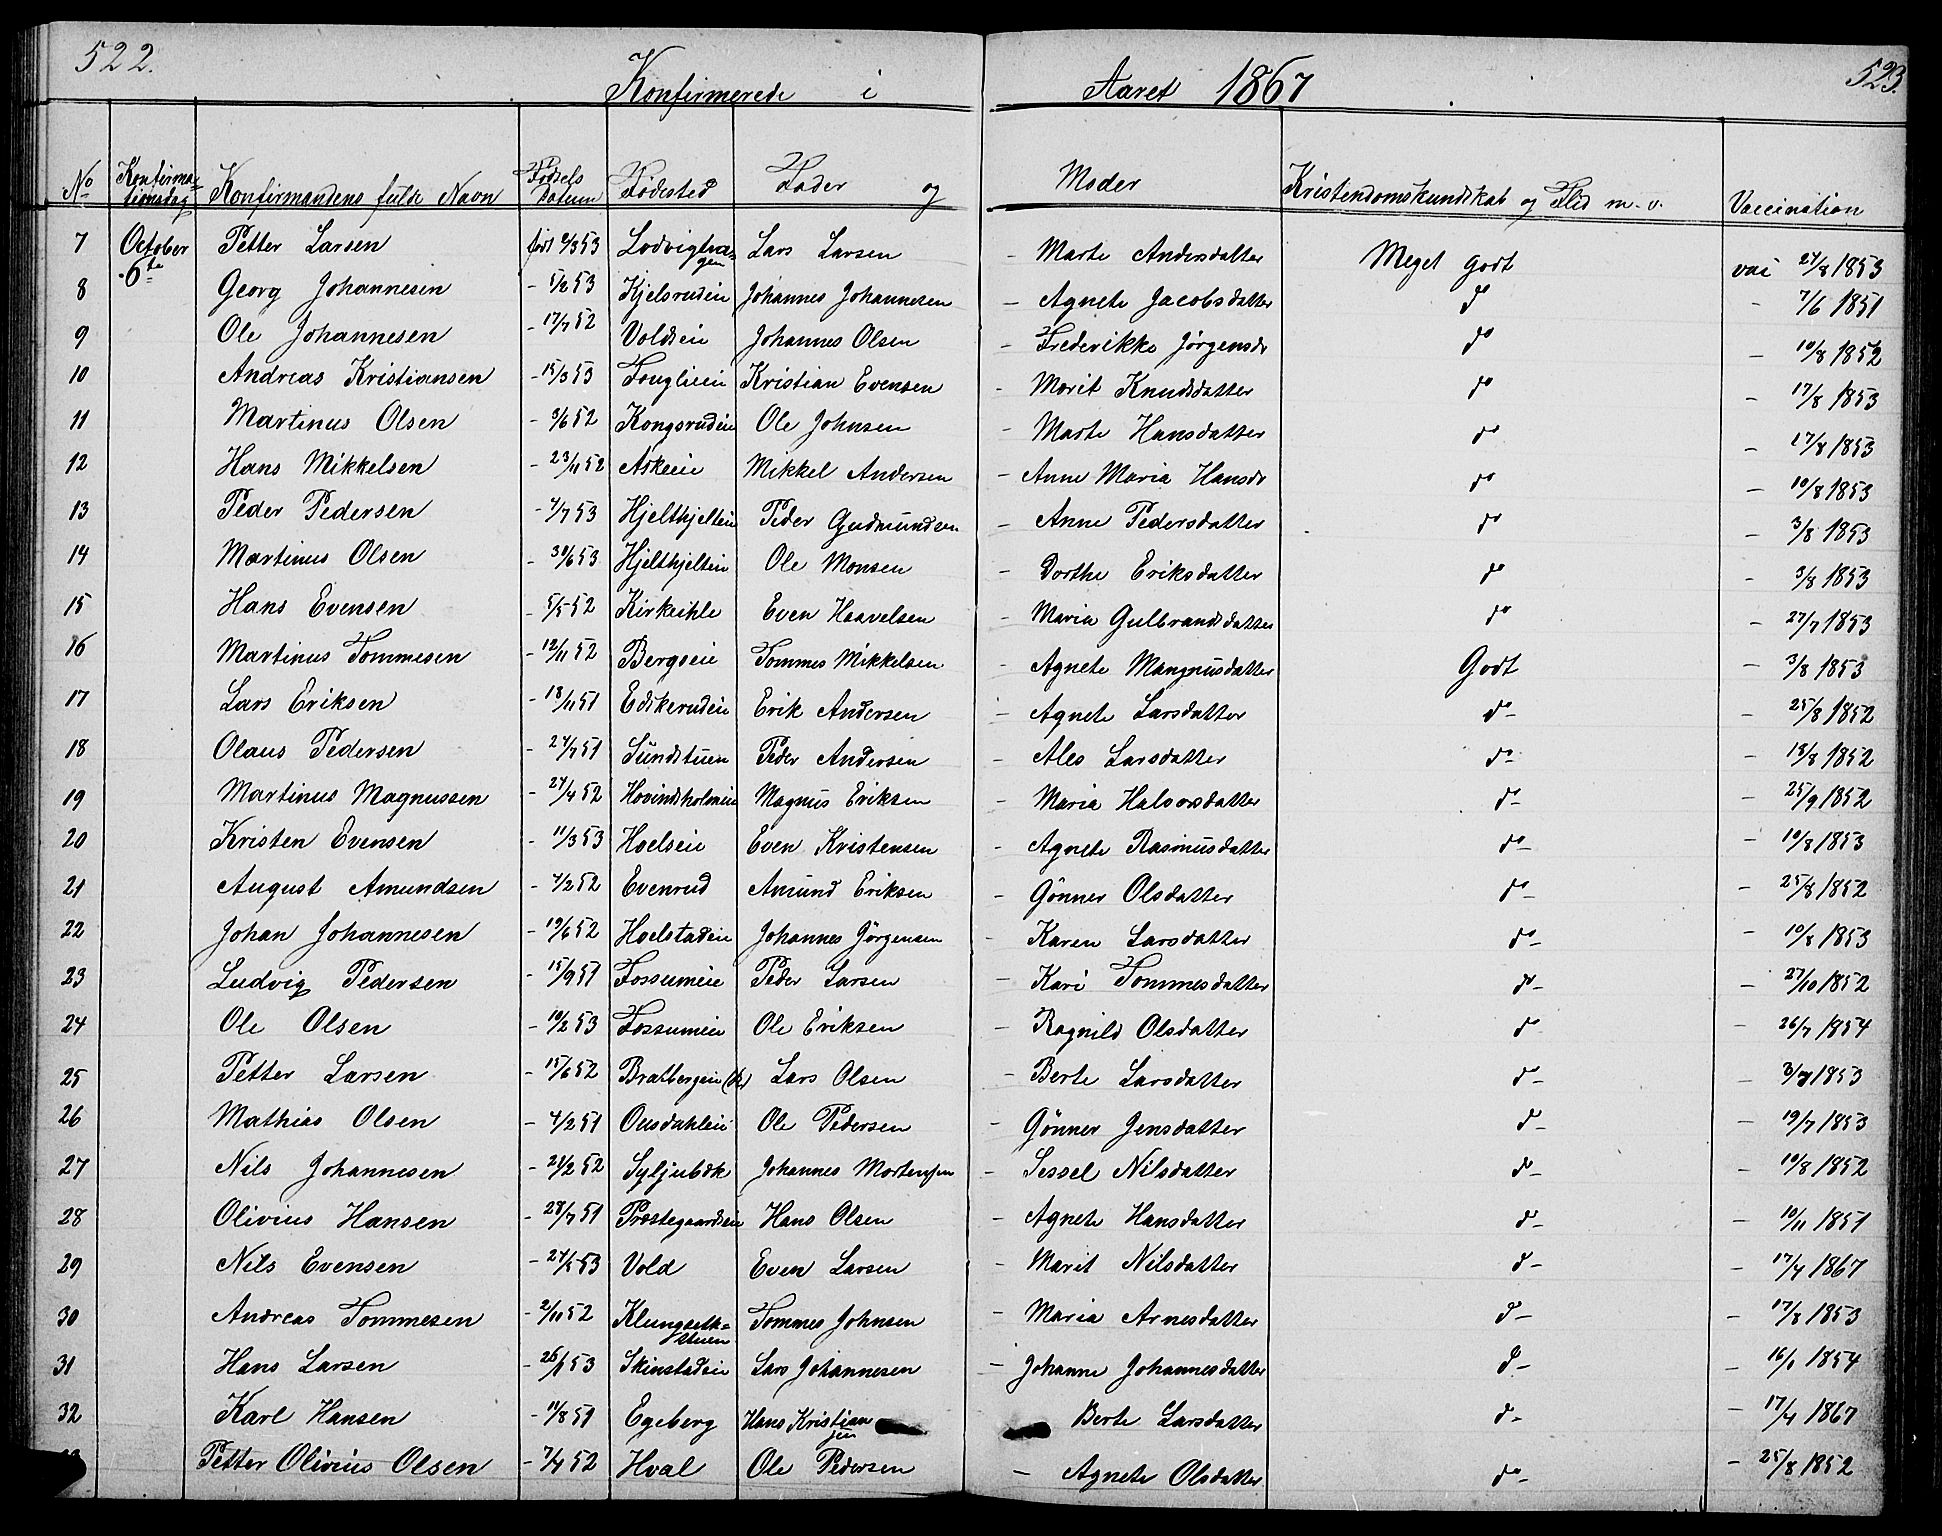 522.
Konfirmerede i Aaret 1867
523.
No Konfirmationsdag Konfirmandens fulde Navn Fødsels Datum Fødested Fader og Moder Kristendomskundskab og Flid m. v. Vaccination
7 October 6te Petter Larsen født 53 Lars Larsen - Marte Andersdatter Meget godt vac 24/8 1853
8 Georg Johannesen - 5/2 53 Kjelsrudeie Johannes Johannesen - Agnete Jacobsdatter do - 7/6 1851
9 Ole Johannesen - 17/7 52 Voldeie Johannes Olsen - Frederikke Jørgensdr do - 10/8 1852
10 Andreas Kristiansen - 15/3 53 Kristian Evensen - Marit Knudsdatter do - 17/8 1853
11 Martinus Olsen - 3/6 52 Kongsrudeie Ole Johnsen - Marte Hansdatter do - 17/8 1853
12 Hans Mikkelsen - 23/11 52 Askeeie Mikkel Andersen - Anne Maria Hansdr do - 10/8 1853
13 Peder Pedersen - 4/7 53 Hjelthjelteie Peder Gudmundsen - Anne Pedersdatter do - 3/8 1853
14 Martinus Olsen - 30/6 53 Hjelthjelteie Ole Monsen - Dorthe Eriksdatter do - 3/8 1853
15 Hans Evensen - 5/5 52 Even Haavelsen - Maria Gulbrandsdatter do - 27/7 1853
16 Martinus Tommesen - 12/11 52 Bergseie Tommes Mikkelsen - Agnete Mangnusdatter Godt - 3/8 1853
17 Lars Eriksen - 18/11 51 Edskerudeie Erik Andersen - Agnete Larsdatter do - 25/8 1852
18 Olaus Pedersen - 24/7 51 Sundstuen Peder Andersen - Ales Larsdatter do - 18/8 1852
19 Martinus Magnussen - 24/4 52 Hovindsholmeie Magnus Eriksen - Maria Halvorsdatter do - 25/9 1852
20 Kristen Evensen - 11/3 53 Hoelseie Even Kristensen - Agnete Rasmusdatter do - 10/8 1853
21 August Amundsen - 4/2 52 Evenrud Amund Eriksen - Gønner Olsdatter do - 25/8 1852
22 Johan Johannesen - 19/6 52 Hoelstadeie Johannes Jørgensen - Karen Larsdatter do - 10/8 1853
23 Ludvig Pedersen - 15/9 51 Fossumeie Peder Larsen - Kari Tommesdatter do - 27/10 1852
24 Ole Olsen - 10/2 53 Fossumeie Ole Eriksen - Ragnild Olsdatter do - 26/7 1854
25 Petter Larsen - 15/6 52 Bratbergeie Lars Olsen - Berte Larsdatter do - 1853
26 Mathias Olsen - 4/2 51 Ousdahleie Ole Pedersen - Gønner Jensdatter do - 19/7 1853
27 Nils Johannesen - 21/2 52 Syljubæk Johannes Mortensen - Sessel Nilsdatter do - 10/8 1852
28 Olivius Hansen - 28/7 51 Præstegaardseie Hans Olsen - Agnete Hansdatter do - 10/11 1851
29 Nils Evensen - 24/5 53 Vold Even Larsen - Marit Nilsdatter do - 17/4 1867
30 Andreas Tommesen - 2/11 52 Klungsethstuen Tommes Johnsen - Maria Arnesdatter do - 17/8 1853
31 Hans Larsen - 26/1 53 Skinstadeie Lars Johannesen - Johanne Johannesdatter do - 1854
32 Karl Hansen - 11/8 51 Egeberg Hans Kristiansen - Berte Larsdatter do - 17/4 1867
Petter Olivius Olsen - 7/4 52 Hval Ole Pedersen - Agnete Olsdatter do - 25/8 1852